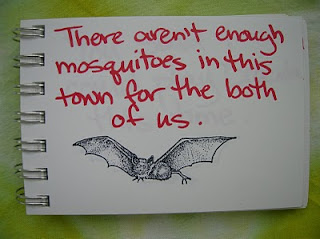 There aren't enough
mosquitoes in this
town for the both
of us.